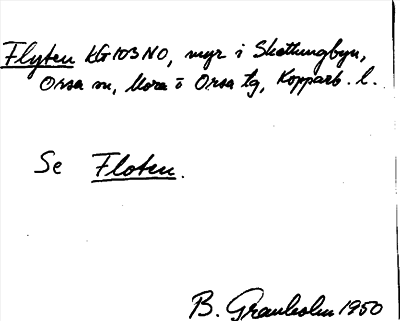 Flyten KG103NO, myr i Skattungbyn,
Orsa sn, Mora o Orsa tg, Kopparb. l.
Se Floten.
B. Granholm 1950